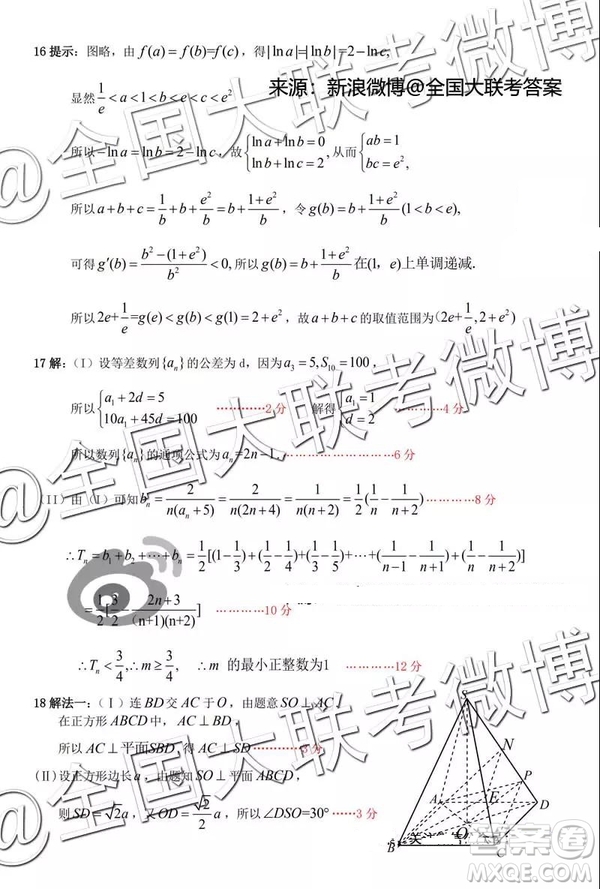 16 提示：图略，由 f(a) = f(b)=f(c)，得|ln a|=|ln b|=2−ln c,
来源：新浪微博@全国大联考答案
显然 1/e < a < 1 < b < e < c < e²
所以 −ln a = ln b = 2 − ln c，故 {ln a + ln b = 0, ln b + ln c = 2, 从而 {ab = 1, bc = e²,
所以 a + b + c = 1/b + b + e²/b = b + (1+e²)/b，令 g(b) = b + (1+e²)/b (1 < b < e),
可得 g′(b) = (b² − (1+e²))/b² < 0, 所以 g(b) = b + (1+e²)/b 在(1，e)上单调递减.
所以 2e+1/e=g(e) < g(b) < g(1) = 2 + e²，故 a + b + c 的取值范围为 (2e+1/e, 2 + e²)
17 解：（I）设等差数列{aₙ}的公差为 d，因为 a₃ = 5, S₁₀ = 100，
所以 {a₁ + 2d = 5, 10a₁ + 45d = 100 …………2 分 解得 {a₁ = 1, d = 2 …………4 分
所以数列{aₙ}的通项公式为 aₙ=2n−1. …………6 分
（II）由（I）可知 bₙ = 2/(n(aₙ+5)) = 2/(n(2n+4)) = 1/(n(n+2)) …………8 分
∴Tₙ = b₁ + b₂ + ⋯ + bₙ = 1/2[(1−1/3)+(1/2−1/4)+(1/3−1/5)+⋯+(1/(n−1)−1/(n+1))+(1/n−1/(n+2))]
= 1/2[3/2 − (2n+3)/((n+1)(n+2))] …………10 分
∴Tₙ < 3/4, ∴m ≥ 3/4, ∴m 的最小正整数为1 …………12 分
18 解法一：（I）连 BD交 AC 于 O，由题意 SO ⊥ AC.
在正方形 ABCD 中，AC ⊥ BD，
所以 AC ⊥ 平面SBD，得 AC ⊥ SD ………3 分
(II) 设正方形边长 a，由题知 SO ⊥ 平面 ABCD,
则 SD = √2a，又OD = √2/2 a，所以∠DSO=30° ……3 分
S
N
P
A
E
D
O
B
C
答案卷
MXQE.COM
@全国大联考微博
@全国大联考微博
@全国大联考微博